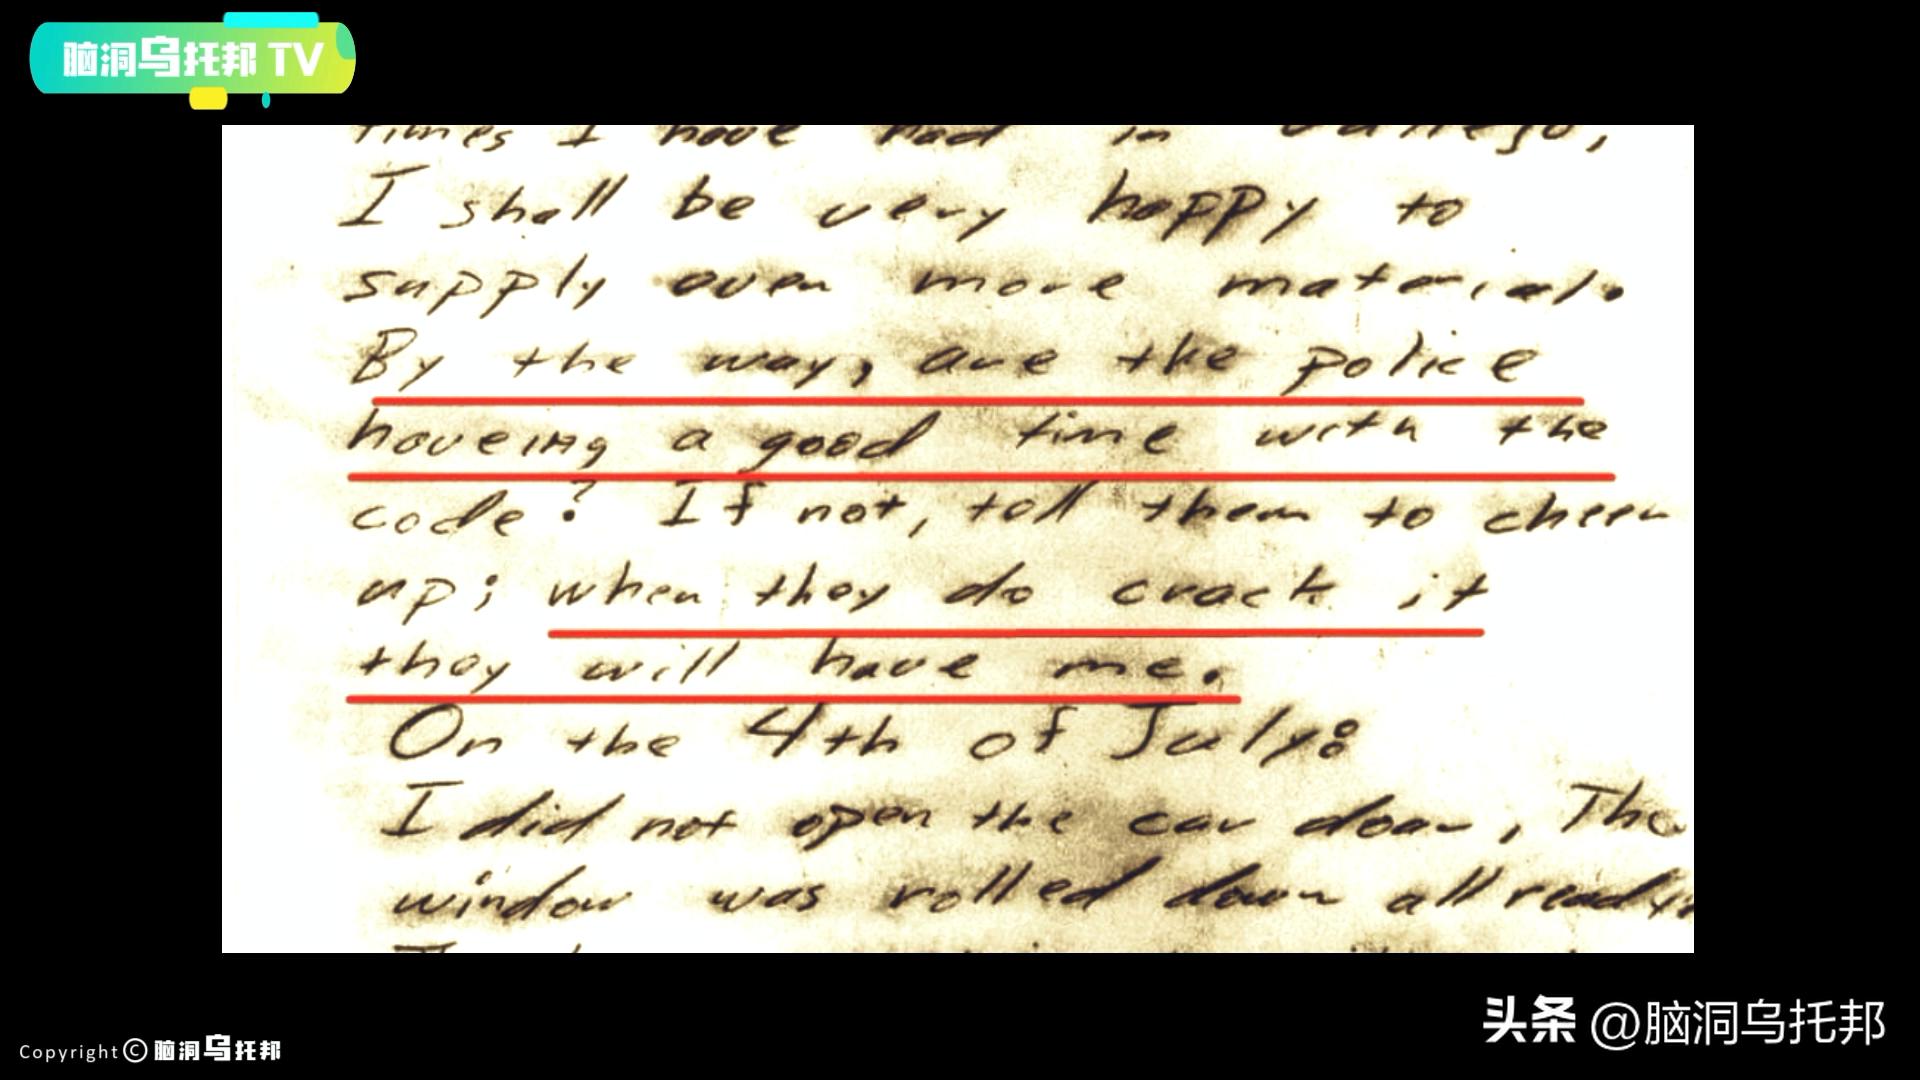 脑洞乌托邦 TV
times I have had in Vallejo,
I shall be very happy to
supply even more material.
By the way, are the police
haveing a good time with the
code? If not, tell them to cheer
up; when they do crack it
they will have me.
On the 4th of July:
I did not open the car door, The
window was rolled down all ready.
头条 @脑洞乌托邦
Copyright © 脑洞乌托邦